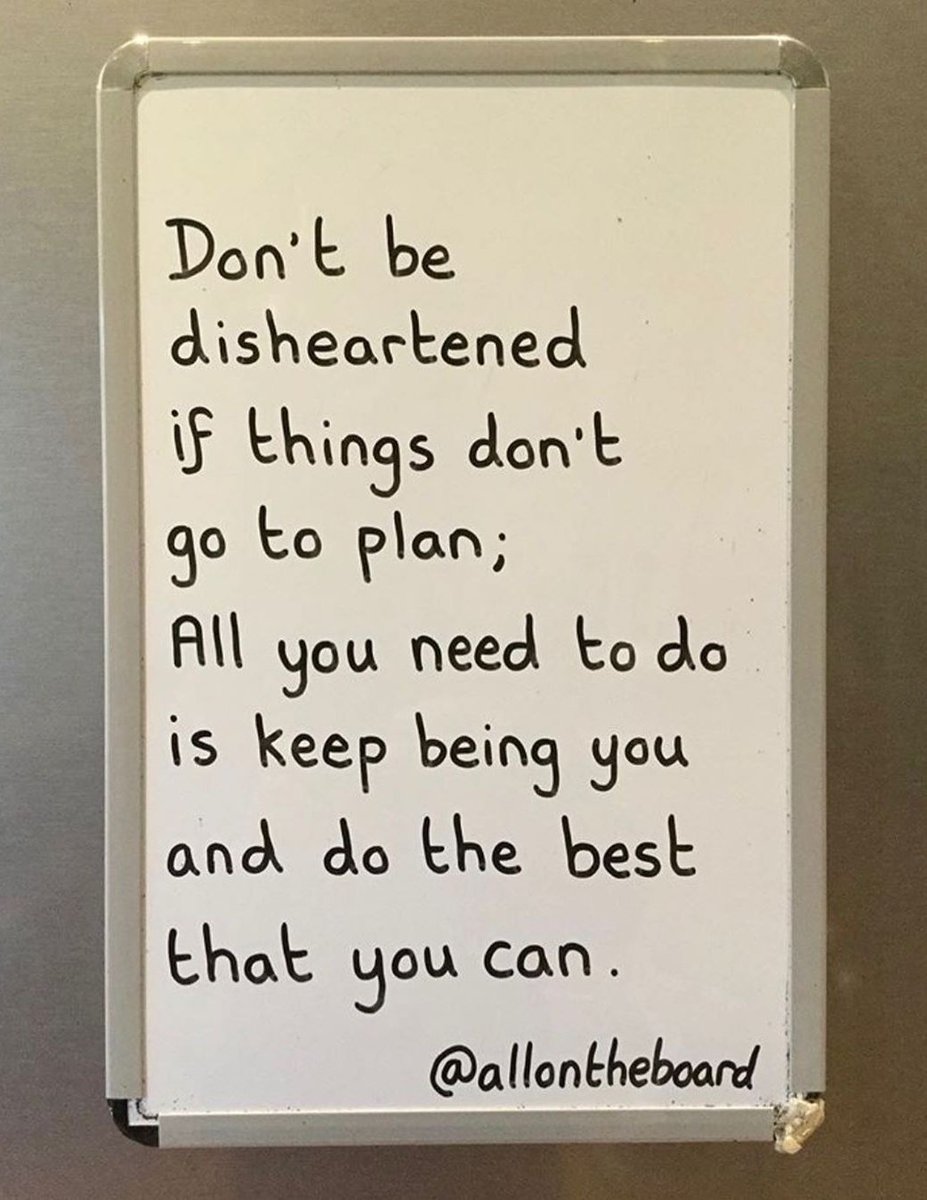 Don't be
disheartened
if things don't
go to plan;
All you need to do
is keep being you
and do the best
that you can.
@allontheboard